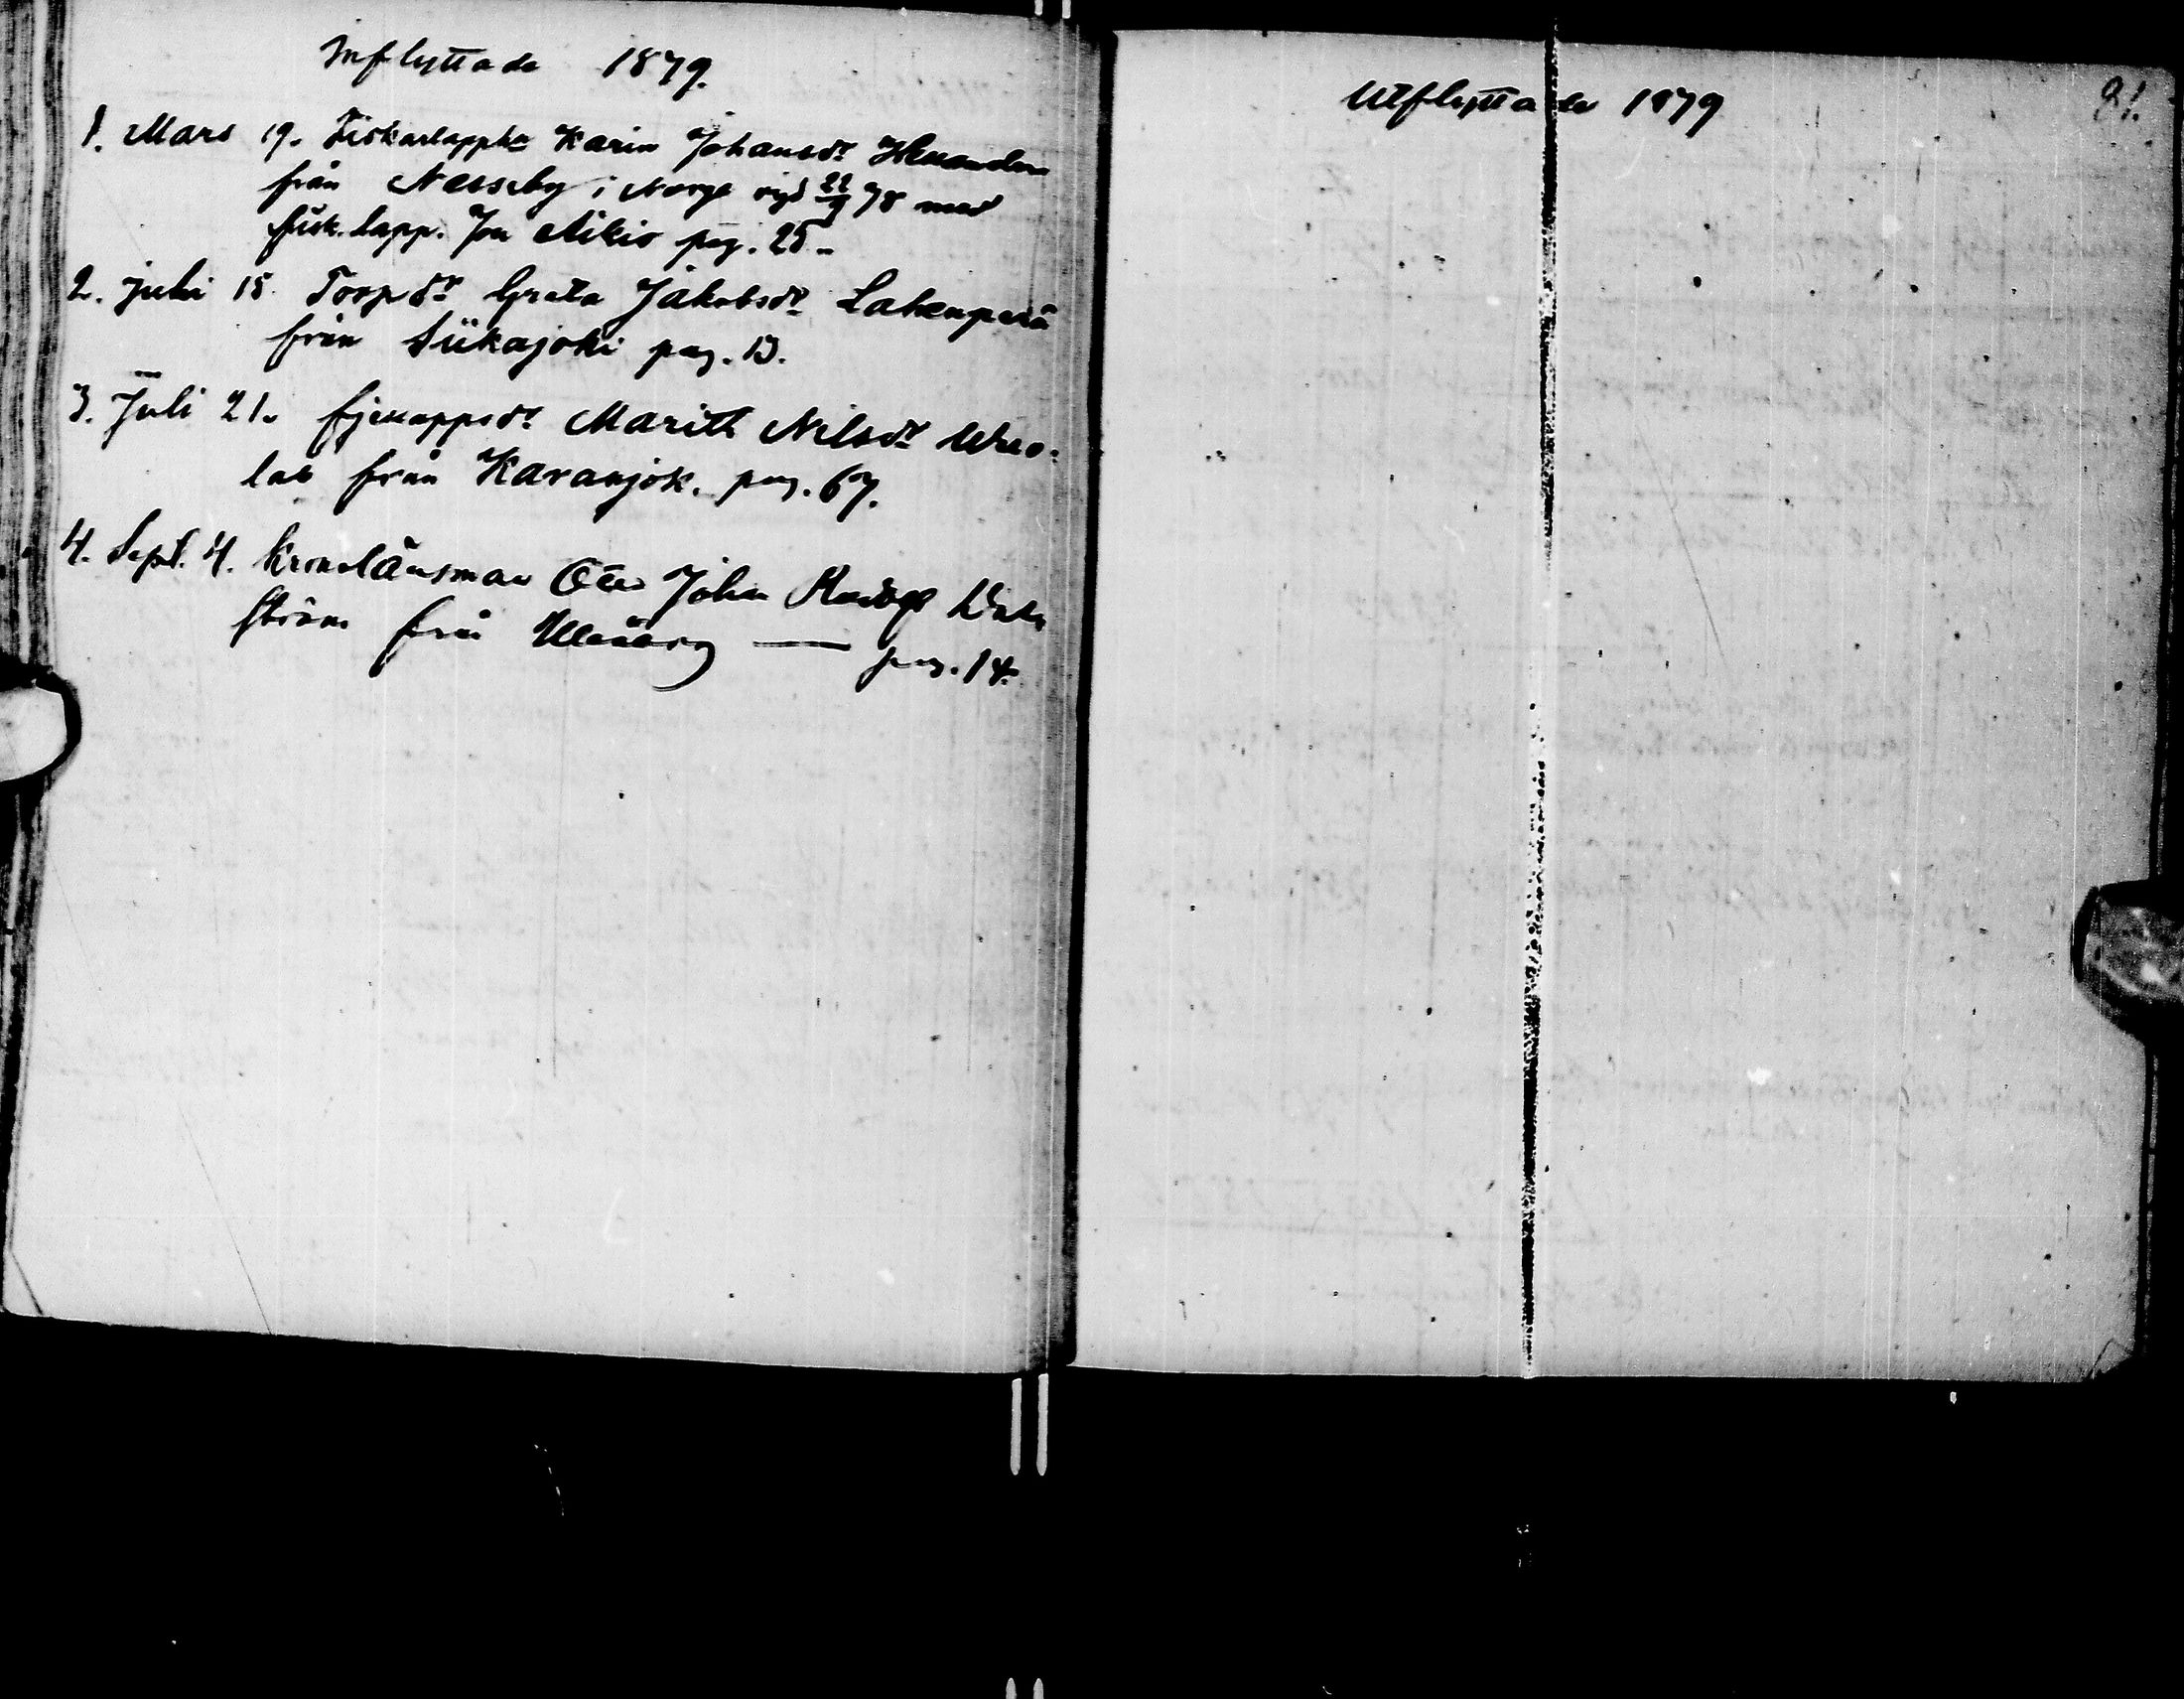 Inflyttade 1879.
1. Mars 19. Fiskarlappka Karin Johansdr
från Nesseby i Norge vigd 22/9 78 med
fisk.lapp. Jon Aikio pag. 25.
2. Juli 15 Torpdr Greta Jakobsdr Lahenperä
från Siikajoki pag. 13.
3. Juli 21. fjellappsdr Marith Nilsdr
lab från Karasjok. pag. 67.
4. Sept. 4. Kronolänsman Otto John
ström från Uleåborg — pag. 14.
Utflyttade 1879
81.